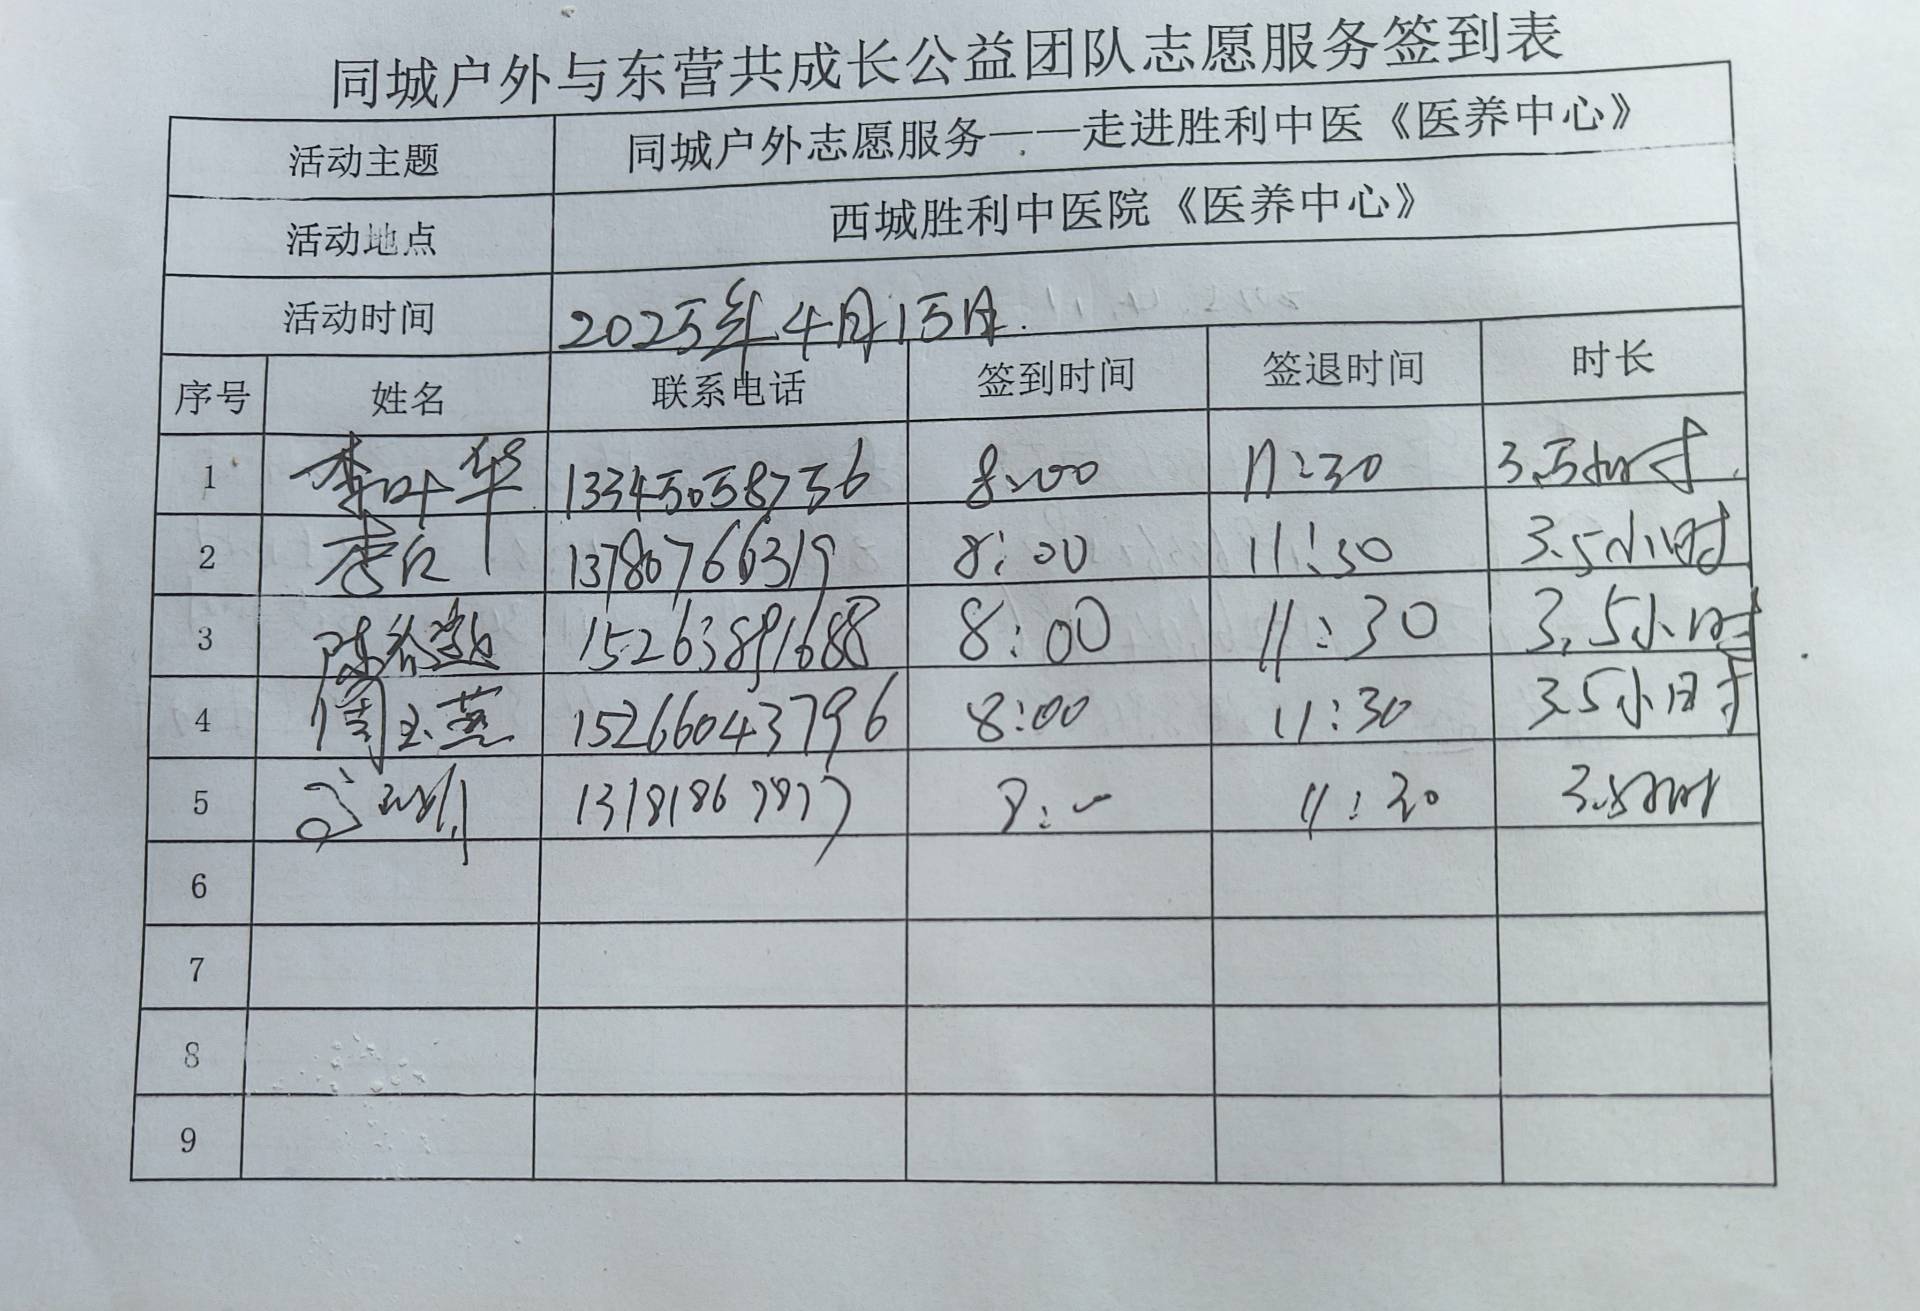 同城户外与东营共成长公益团队志愿服务签到表
活动主题 同城户外志愿服务——走进胜利中医《医养中心》
活动地点 西城胜利中医院《医养中心》
活动时间 2025年4月15日.
序号 姓名 联系电话 签到时间 签退时间 时长
1 李叶华 13345058756 8:00 11:30 3.5小时
2 李 13780766319 8:00 11:30 3.5小时
3 陈 15263891688 8:00 11:30 3.5小时
4 周玉燕 15266043796 8:00 11:30 3.5小时
5 13181867877 8:00 11:30 3.5小时
6
7
8
9